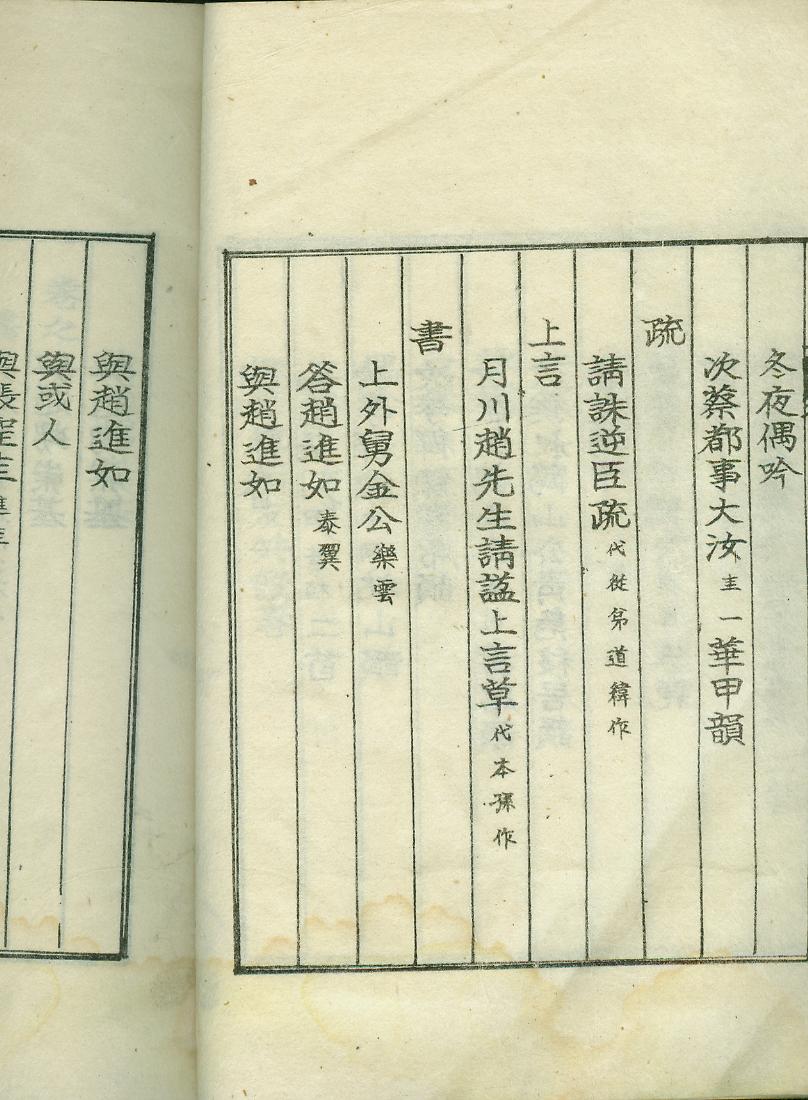 冬夜偶吟
次蔡都事大汝圭一華甲韻
疏
請誅逆臣疏代從弟道緯作
上言
月川趙先生請諡上言草代本孫作
書
上外舅金公樂雲
答趙進如泰翼
與趙進如
與趙進如
與或人